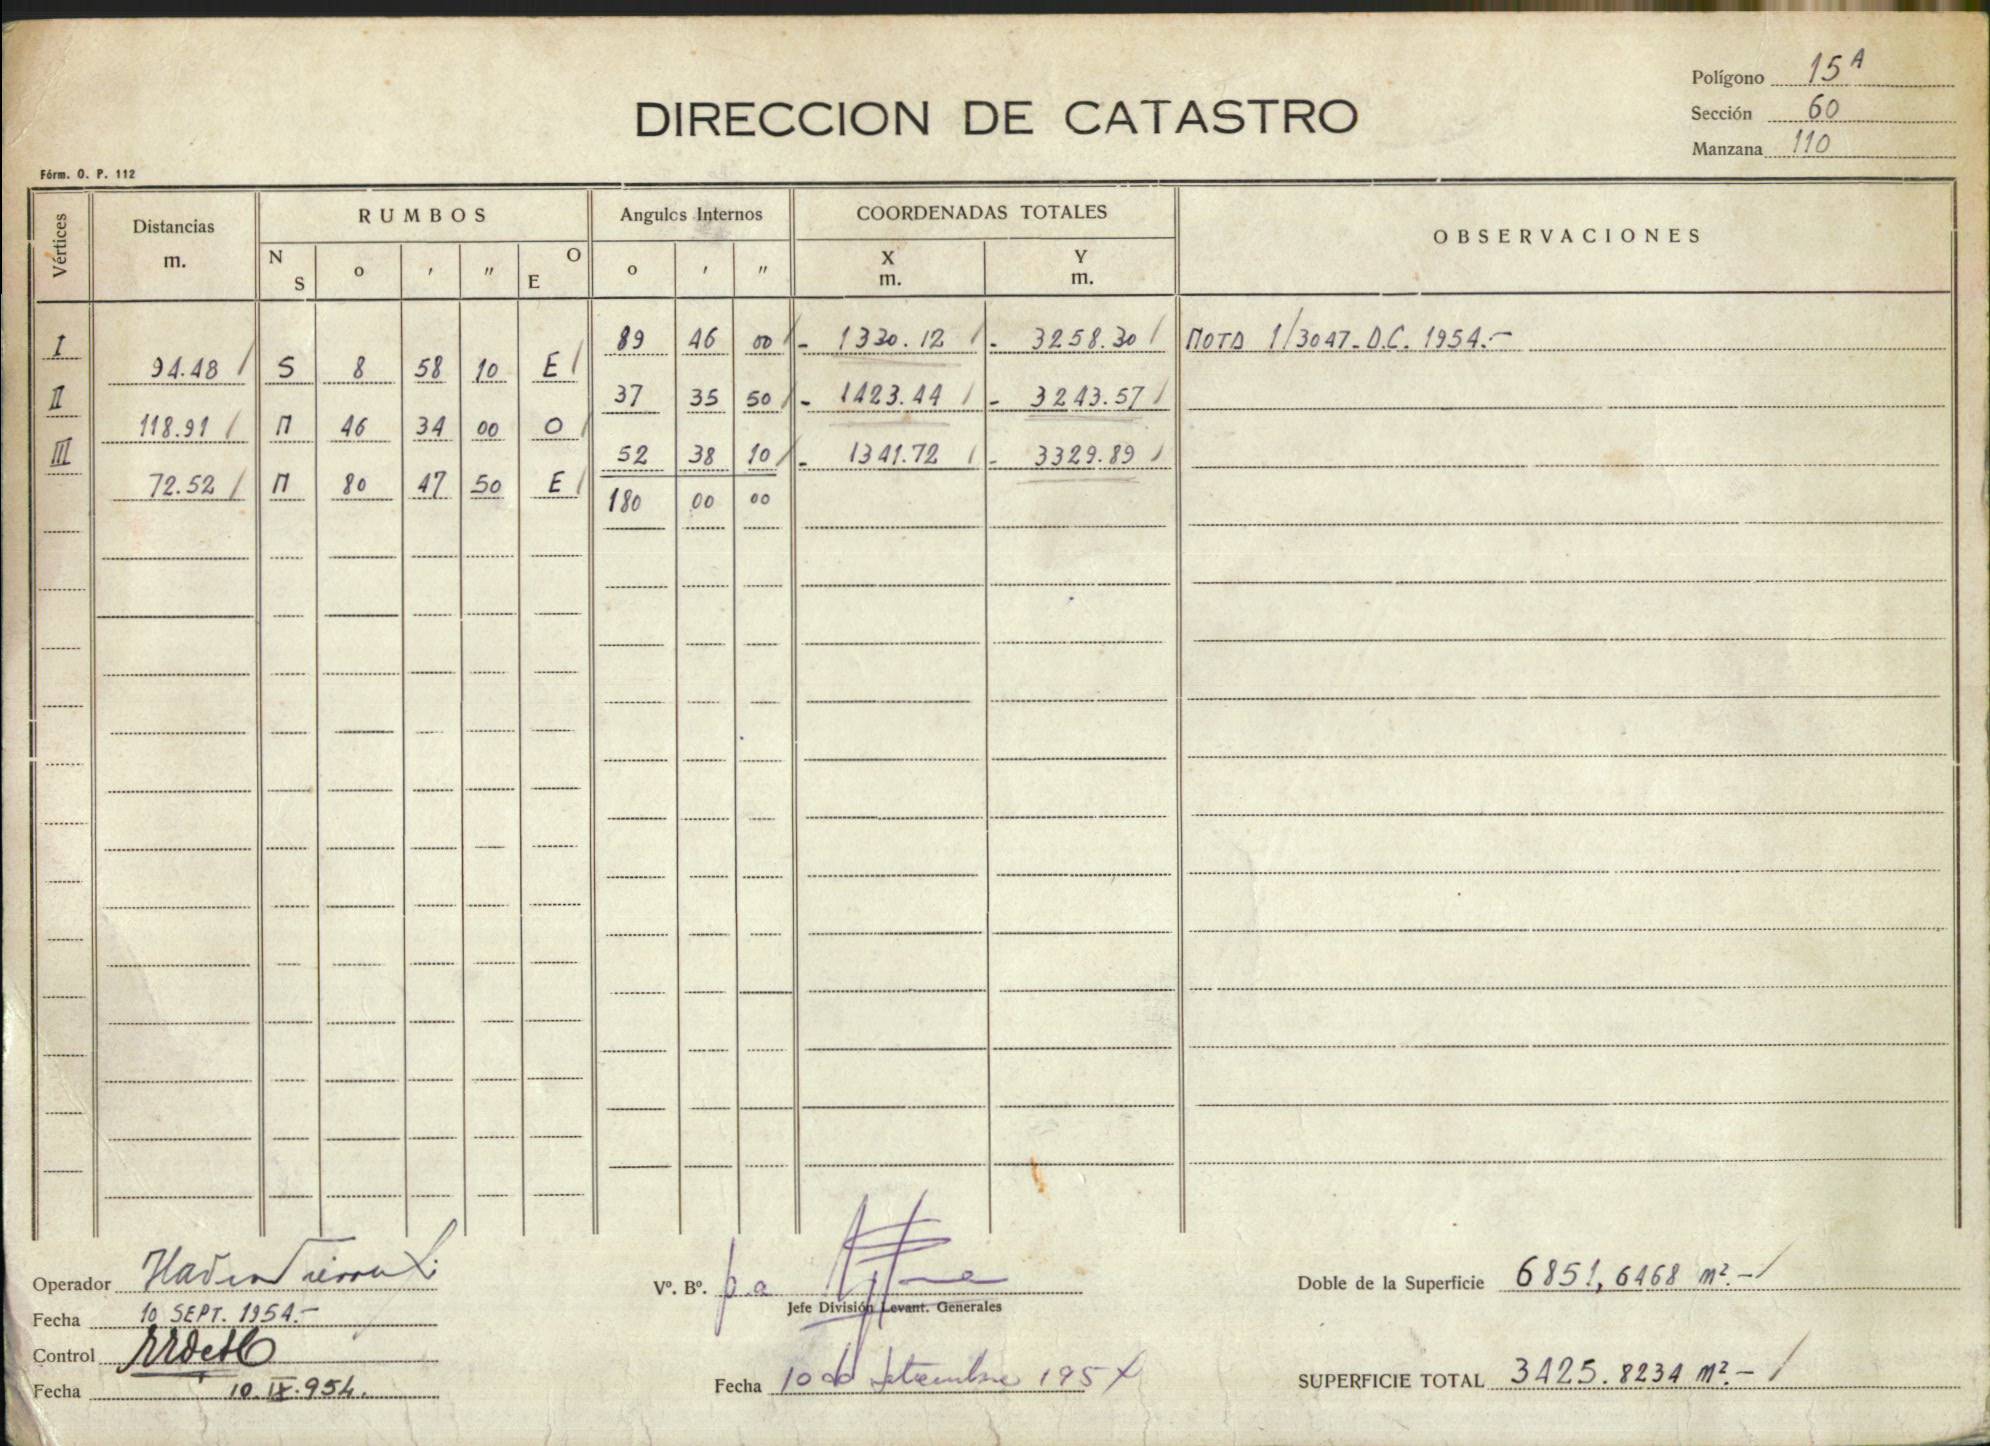 Polígono 15A
DIRECCION DE CATASTRO
Sección 60
Manzana 110
Fórm. O. P. 112
Vértices
Distancias
m.
RUMBOS
N
S
o
,
,,
O
E
Angulos Internos
o
,
,,
COORDENADAS TOTALES
X
m.
Y
m.
OBSERVACIONES
I 89 46 00 - 1330.12 - 3258.30 NOTA 1/3047-D.C. 1954.-
94.48 S 8 58 10 E
II 37 35 50 - 1423.44 - 3243.57
118.91 N 46 34 00 O
III 52 38 10 - 1341.72 - 3329.89
72.52 N 80 47 50 E
180 00 00
Operador
Vº. Bº. p.a
Jefe División Levant. Generales
Doble de la Superficie 6851,6468 m².-
Fecha 10 SEPT. 1954.-
Control
Fecha 10.IX.954.
Fecha 10 de setiembre 1954
SUPERFICIE TOTAL 3425.8234 m².-